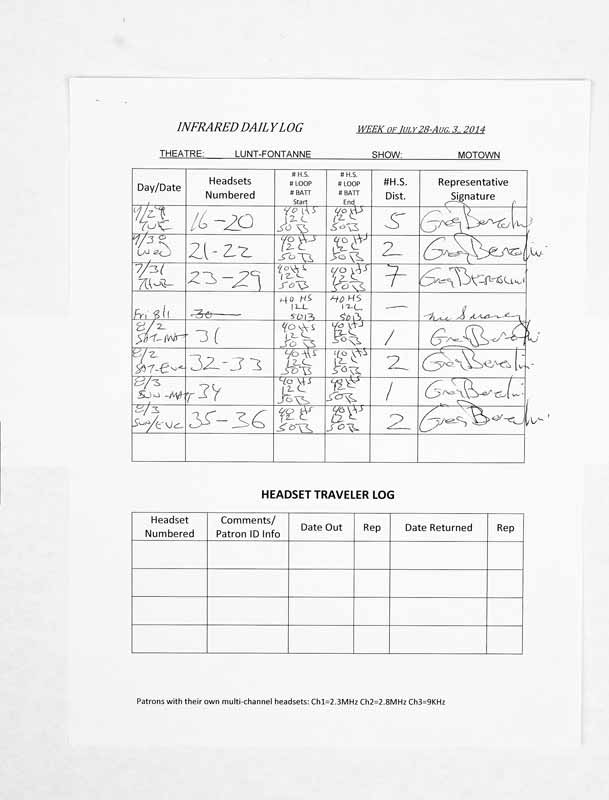 INFRARED DAILY LOG WEEK OF JULY 28-AUG. 3, 2014
THEATRE: LUNT-FONTANNE SHOW: MOTOWN
Day/Date Headsets Numbered # H.S. # LOOP # BATT Start # H.S. # LOOP # BATT End #H.S. Dist. Representative Signature
7/29 TUE 16-20 40 HS 12L 50B 40 HS 12L 50B 5 Greg
7/30 WED 21-22 40 HS 12L 50B 40 HS 12L 50B 2 Greg
7/31 THUR 23-29 40 HS 12L 50B 40 HS 12L 50B 7 Greg
Fri 8/1 30 40 HS 12L 50B 40 HS 12L 50B —
8/2 SAT-MAT 31 40 HS 12L 50B 40 HS 12L 50B 1 Greg
8/2 SAT-EVE 32-33 40 HS 12L 50B 40 HS 12L 50B 2 Greg
8/3 SUN-MAT 34 40 HS 12L 50B 40 HS 12L 50B 1 Greg
8/3 SUN/EVE 35-36 40 HS 12L 50B 40 HS 12L 50B 2 Greg
HEADSET TRAVELER LOG
Headset Numbered Comments/ Patron ID Info Date Out Rep Date Returned Rep
Patrons with their own multi-channel headsets: Ch1=2.3MHz Ch2=2.8MHz Ch3=9KHz